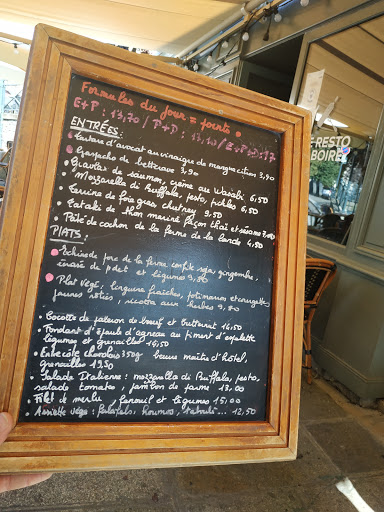 Formules du jour = points •
E+P : 13,70 / P+D : 13,70 / E+P+D : 17
ENTRÉES :
• Tartare d'avocat au vinaigre de mangue citron 3,90
• Gaspacho de betterave 3,90
• Gravlax de saumon, crème au Wasabi 6,50
• Mozzarella di Buffala, pesto, pickles 6,50
• Terrine de foie gras chutney 9,50
• Tataki de thon mariné façon thaï et sésame
• Pâté de cochon de la ferme de la lande 4,50
PLATS :
• Echine de porc de la ferme confite soja, gingembre,
écrasé de pdet et légumes 9,80
• Plat végé : linguine fraîches, potimarron et courgettes
jaunes rôties, ricotta aux herbes 9,80
• Cocotte de paleron de boeuf et butternut 14,50
• Fondant d'épaule d'agneau au piment d'espelette
légumes et grenailles 16,50
• Entrecôte charolais 350g beurre maître d'hôtel,
grenailles 19,50
• Salade Italienne : mozzarella di Buffala, pesto,
salade tomates, jambon de parme 13,00
• Filet de merlu, fenouil et légumes 15,00
• Assiette végé : falafels, houmos, taboulé... 12,50
E RESTO
BOIRE